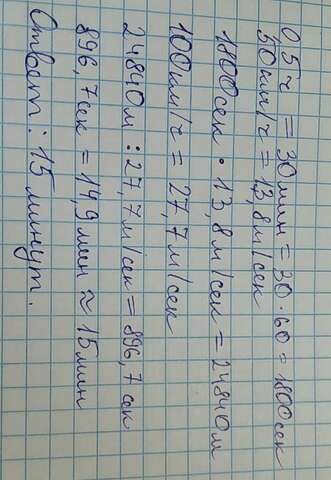 0 5 ч = 30 мин = 30 · 60 = 1800 сек
50 км/ч = 13,8 м/сек
1800 сек · 13,8 м/сек = 24840 м
100 км/ч = 27,7 м/сек
24840 м : 27,7 м/сек = 896,7 сек
896,7 сек = 14,9 мин ≈ 15 мин
Ответ: 15 минут.